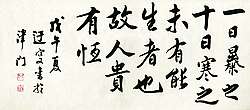 一日暴之
十日寒之
未有能
生者也
故人貴
有恒
戊午夏
書於
津門